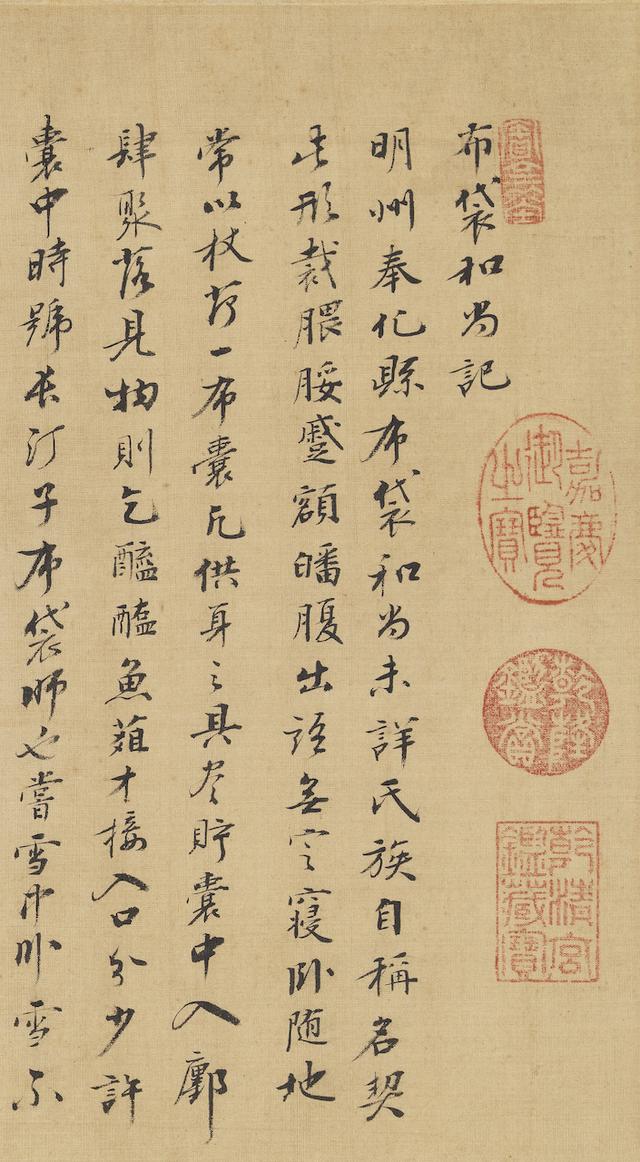 嘉慶御覽之寶
乾隆鑑賞
乾清宮鑑藏寶
布袋和尚記
明州奉化縣布袋和尚未詳氏族自稱名契
此形裁腲脮蹙額皤腹出語無定寢臥隨地
常以杖荷一布囊凡供身之具尽貯囊中入鄽
肆聚落見物則乞醯醢魚葅才接入口分少許
囊中時號長汀子布袋師也嘗雪中臥雪不